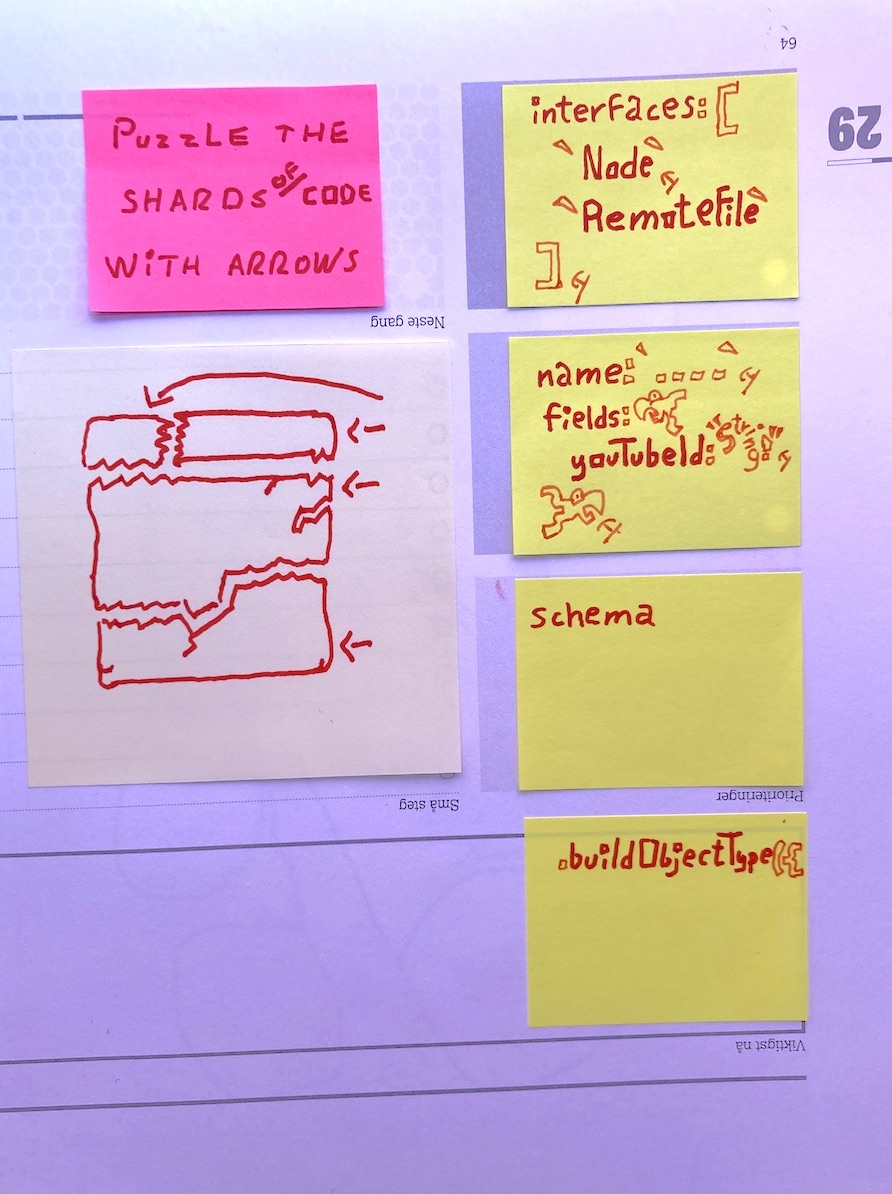 64
29
PUZZLE THE
SHARDS OF CODE
WITH ARROWS
Neste gang
interfaces: [
`Node`,
`RemoteFile`
],
name: `....`,
fields: {
youTubeId: "String",
},
schema
Små steg
Prioriteringer
.buildObjectType({
Viktigst nå